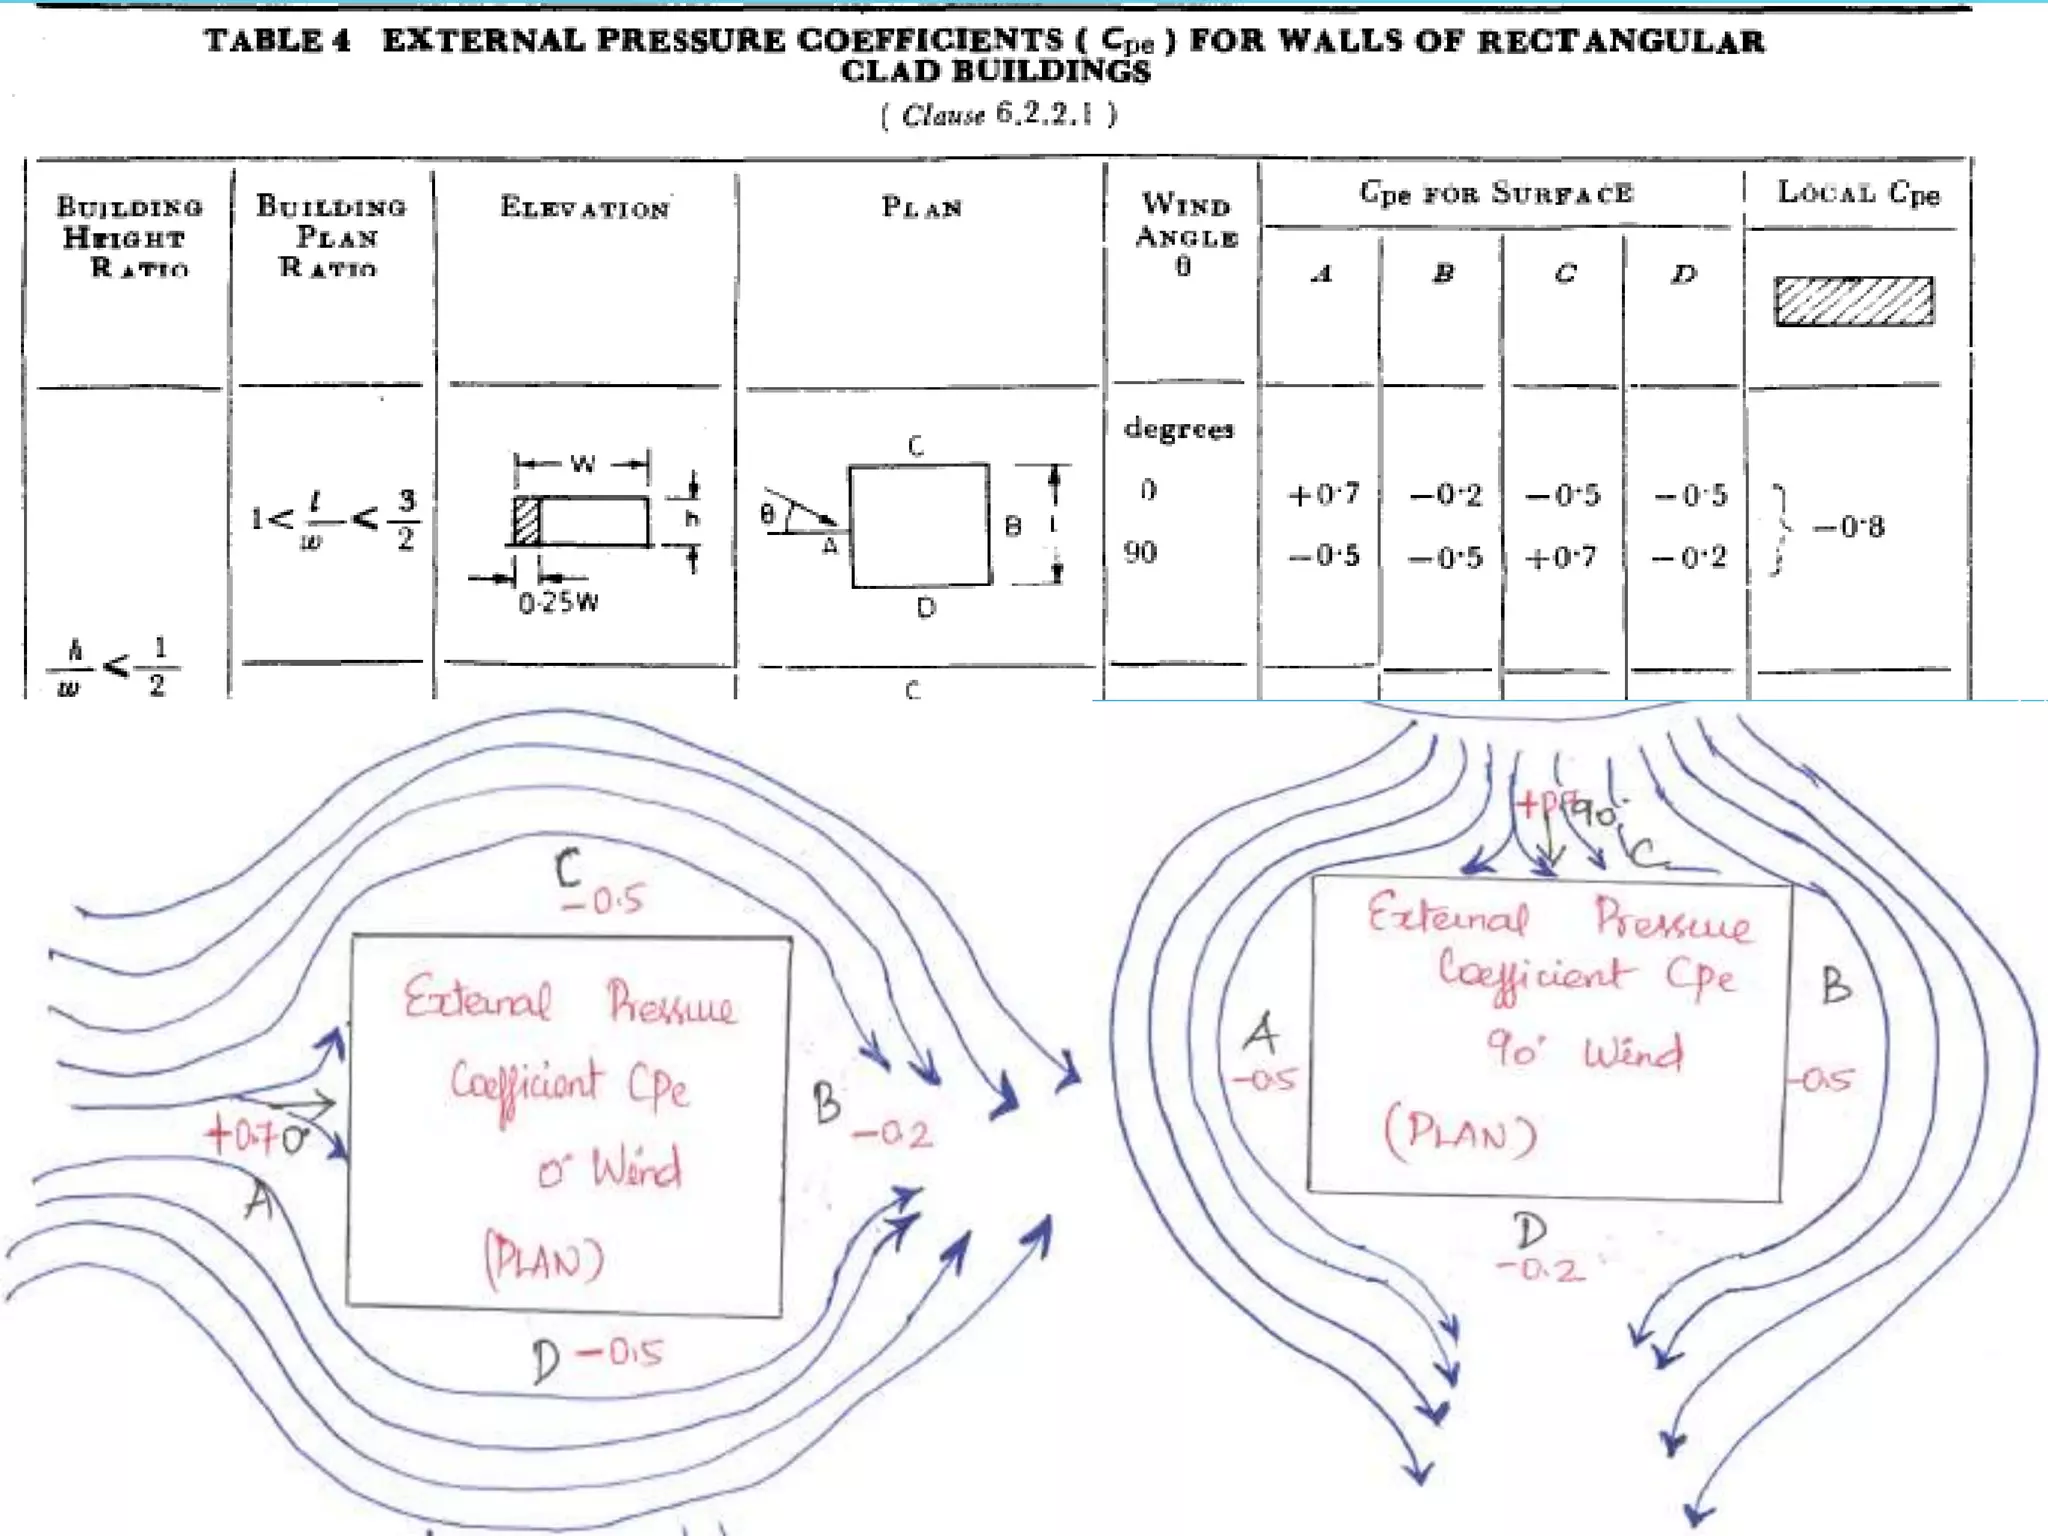 TABLE 4 EXTERNAL PRESSURE COEFFICIENTS ( Cpe ) FOR WALLS OF RECTANGULAR
CLAD BUILDINGS
( Clause 6.2.2.1 )
BUILDING HEIGHT RATIO
BUILDING PLAN RATIO
ELEVATION
PLAN
WIND ANGLE θ
Cpe FOR SURFACE
A B C D
LOCAL Cpe
degrees
h/w < 1/2
1 < l/w < 3/2
W
h
0·25W
C
θ
A
B
l
D
0 +0·7 −0·2 −0·5 −0·5
90 −0·5 −0·5 +0·7 −0·2
−0·8
C
C
−0.5
External Pressure
Coefficient Cpe
0° Wind
(PLAN)
+0.7 0°
A
B
−0.2
D −0.5
90°
C
External Pressure
Coefficient Cpe
90° Wind
(PLAN)
A
−0.5
B
−0.5
D
−0.2